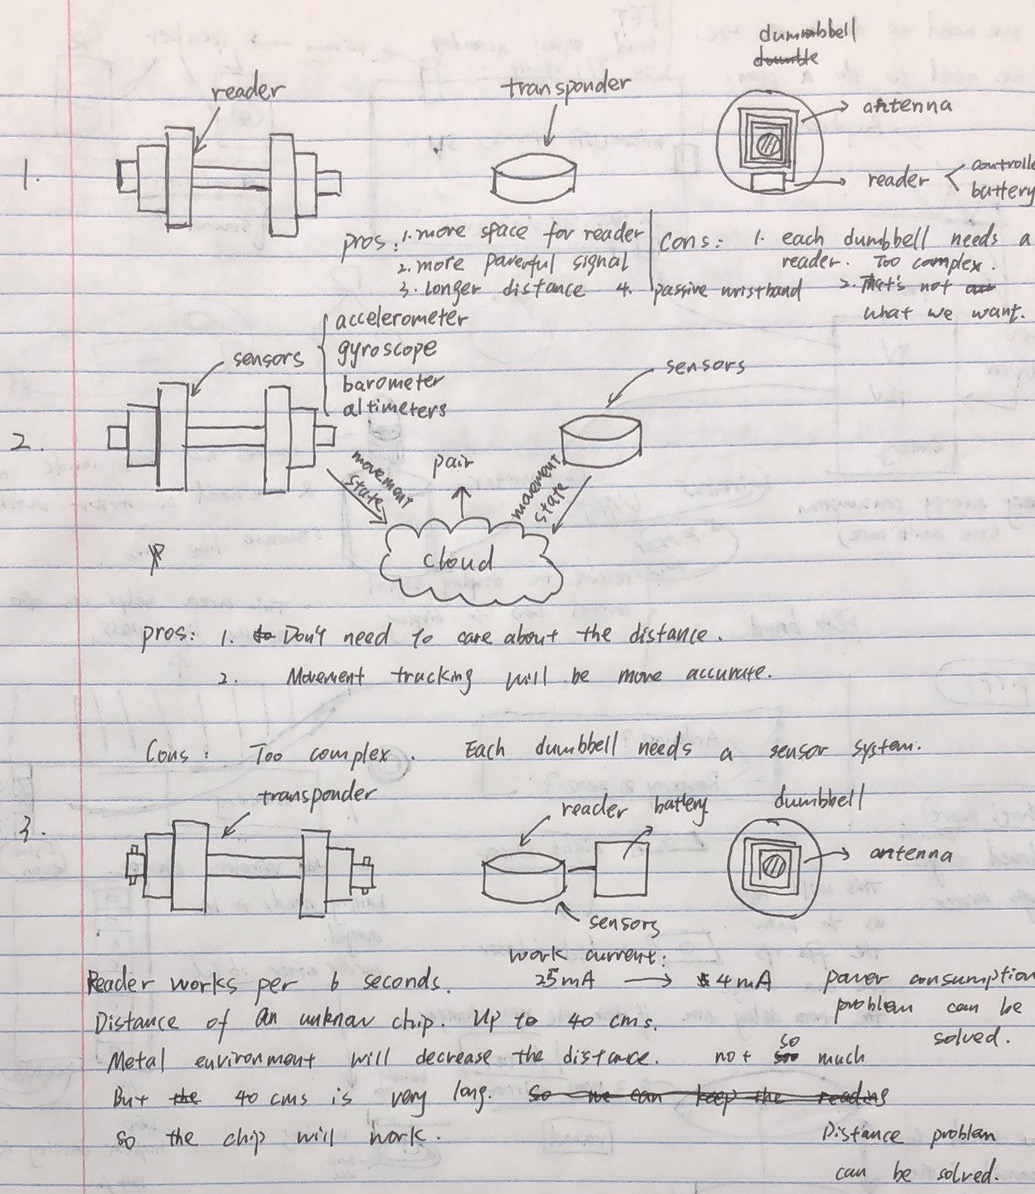 reader
transponder
dumbbell
dumble
1.
antenna
reader < controlle
battery
pros: 1. more space for reader
2. more powerful signal
3. Longer distance 4. passive wristband
Cons: 1. each dumbbell needs a
reader. Too complex.
2. That's not
what we want.
2.
sensors
accelerometer
gyroscope
barometer
altimeters
sensors
movement
state
pair
movement
state
cloud
pros: 1. to Don't need to care about the distance.
2. Movement tracking will be more accurate.
Cons: Too complex. Each dumbbell needs a sensor system.
3.
transponder
reader
battery
dumbbell
antenna
sensors
work current:
Reader works per 6 seconds. 25mA → 4mA power consumption
problem can be
solved.
Distance of an unknow chip. Up to 40 cms.
Metal environment will decrease the distance. not so much
But the 40 cms is very long. So we can keep the reading
so the chip will work.
Distance problem
can be solved.